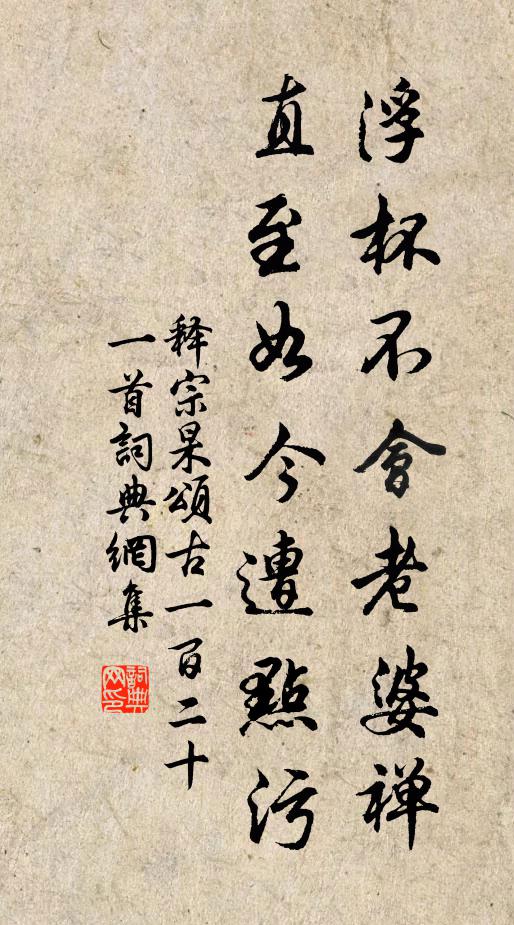 浮杯不會老婆禅
直至如今遭點污
释宗杲頌古一百二十
一首詞典網集
詞典
网印